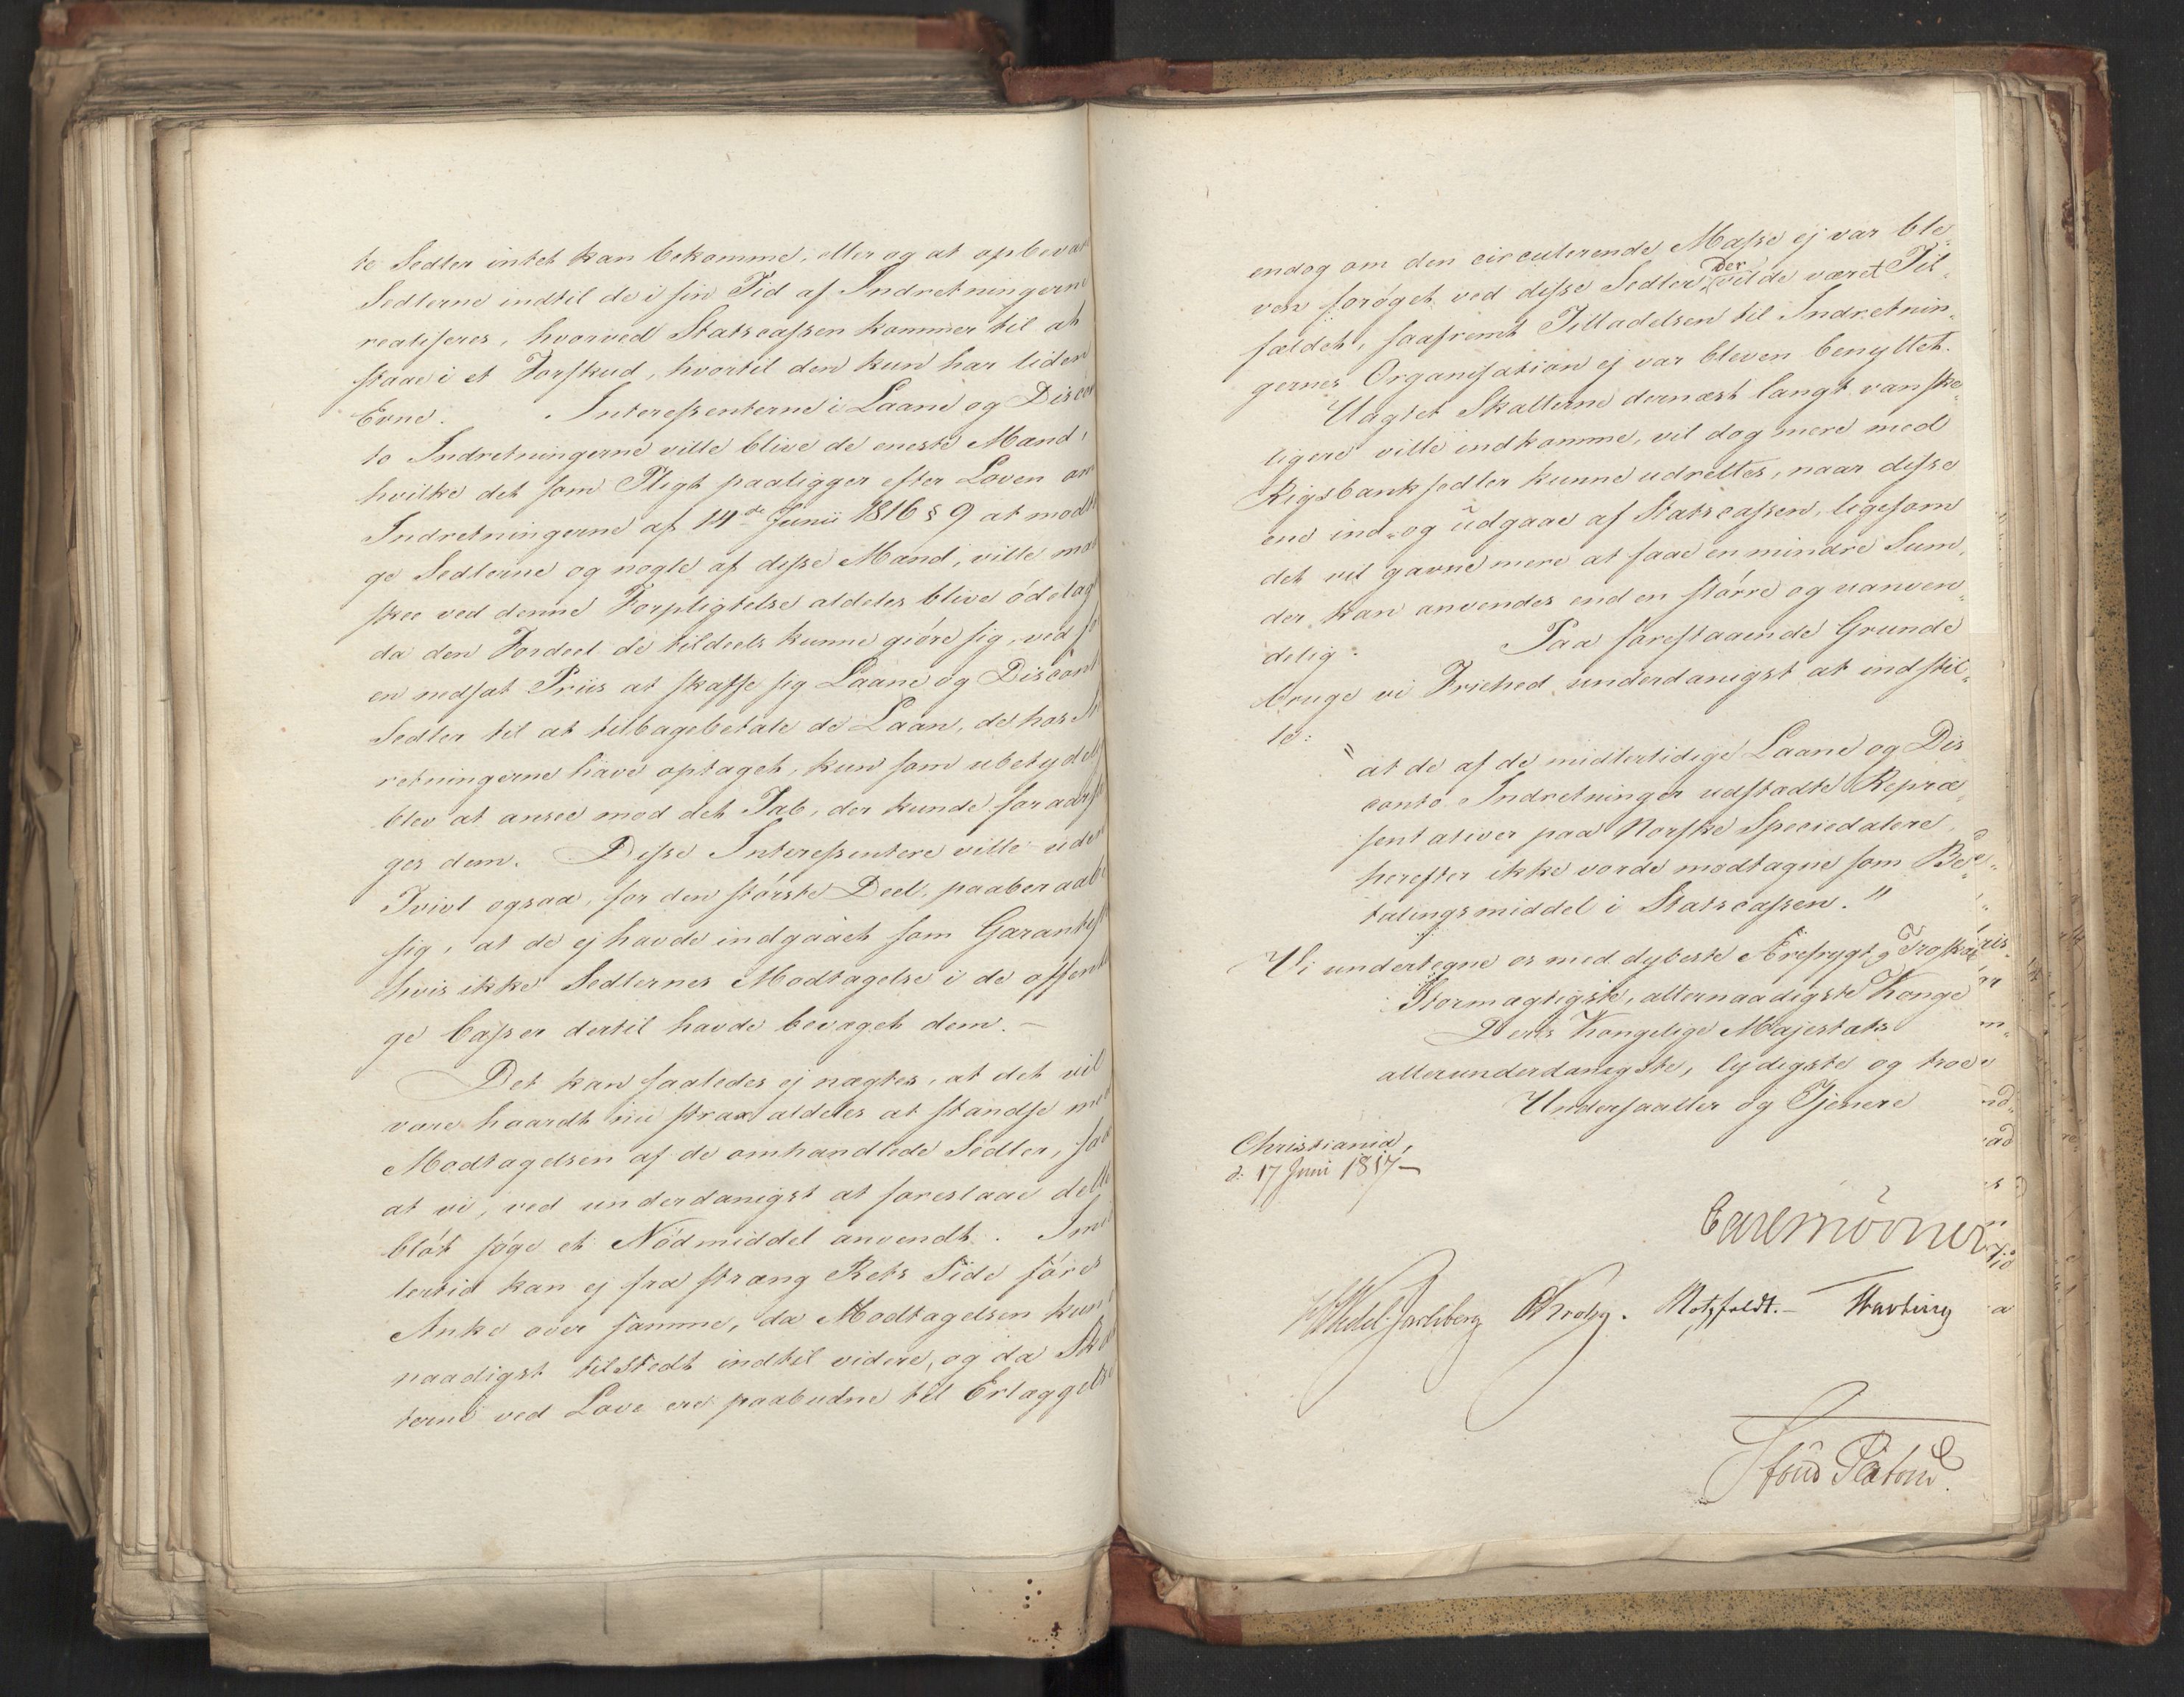 te Sedler intet kan bekomme, eller og at opbevar
Sedlerne indtil de i sin Tid af Indretningerne
realiseres, hvorved Statscassen kommer til at
staae i et Forskud, hvortil den kun har liden
Evne. Interessenterne i Laane og Discon
to Indretningerne ville blive de eneste Mænd,
hvilke det som Pligt paaligger efter Loven om
Indretningerne af 14de Junii 1816 § 9 at modta
ge Sedlerne og nogle af disse Mænd, ville maa
skee ved denne Forpligtelse aldeles blive ödelag
da den Fordeel de tildeels kunne giöre sig, ved fo
en nedsat Priis at skaffe sig Laane og Discont
Sedler til at tilbagebetale de Laan, de hos In
retningerne have optaget, kun som ubetydel
blev at ansee mod det Tab, der kunde foraarsa
ges dem. Disse Interessentere ville uden
Tvivl ogsaa, for den störste Deel, paaberaabe
sig, at de ej havde indgaaet som Garantist
hvis ikke Sedlernes Modtagelse i de offentli
ge Casser dertil havde bevæget dem. –
Det kan saaledes ej nægtes, at det vil
være haardt nu strax aldeles at standse med
Modtagelsen af de omhandlede Sedler, saa
at vi, ved underdanigst at foreslaae dette
blot söge et Nödmiddel anvendt. Imid
lertid kan ej fra stræng Rets Side föres
Anke over samme, da Modtagelsen kun
naadigst tilstedt indtil videre, og da Ska
terne ved Love ere paabudne til Erlæggelse
endog om den circulerende Masse ej var ble-
ven foröget ved disse Sedler, der vilde været Til-
fældet, saafremt Tilladelsen til Indretnin-
gernes Organisation ej var bleven benyttet.
Uagtet Skatterne dernæst langt vanske
ligere ville indkomme, vil dog mere med
Rigsbanksedler kunne udrettes, naar disse
end ind- og udgaae af Statscassen, ligesom
det vil gavne mere at faae en mindre Sum,
der kan anvendes end en större og uanven-
delig. Paa forestaaende Grunde
bruge vi Friehed underdanigst at indstil-
le:
"at de af de midlertidige Laane og Dis
conto Indretninger udstædte Repræ
sentativer paa Norske Speciedalere,
herefter ikke vorde modtagne som Be-
talingsmiddel i Statscassen."
Vi undertegne os med dybeste Ærefrygt og Troskab
Stormægtigste, allernaadigste Konge
Deres Kongelige Majestæts
allerunderdanigste, lydigste og troe
Undersaatter og Tjenere
Christiania,
d: 17 Juni 1817 –
Carl Mörner
HWedel Jarlsberg Krohg. Motzfeldt. –